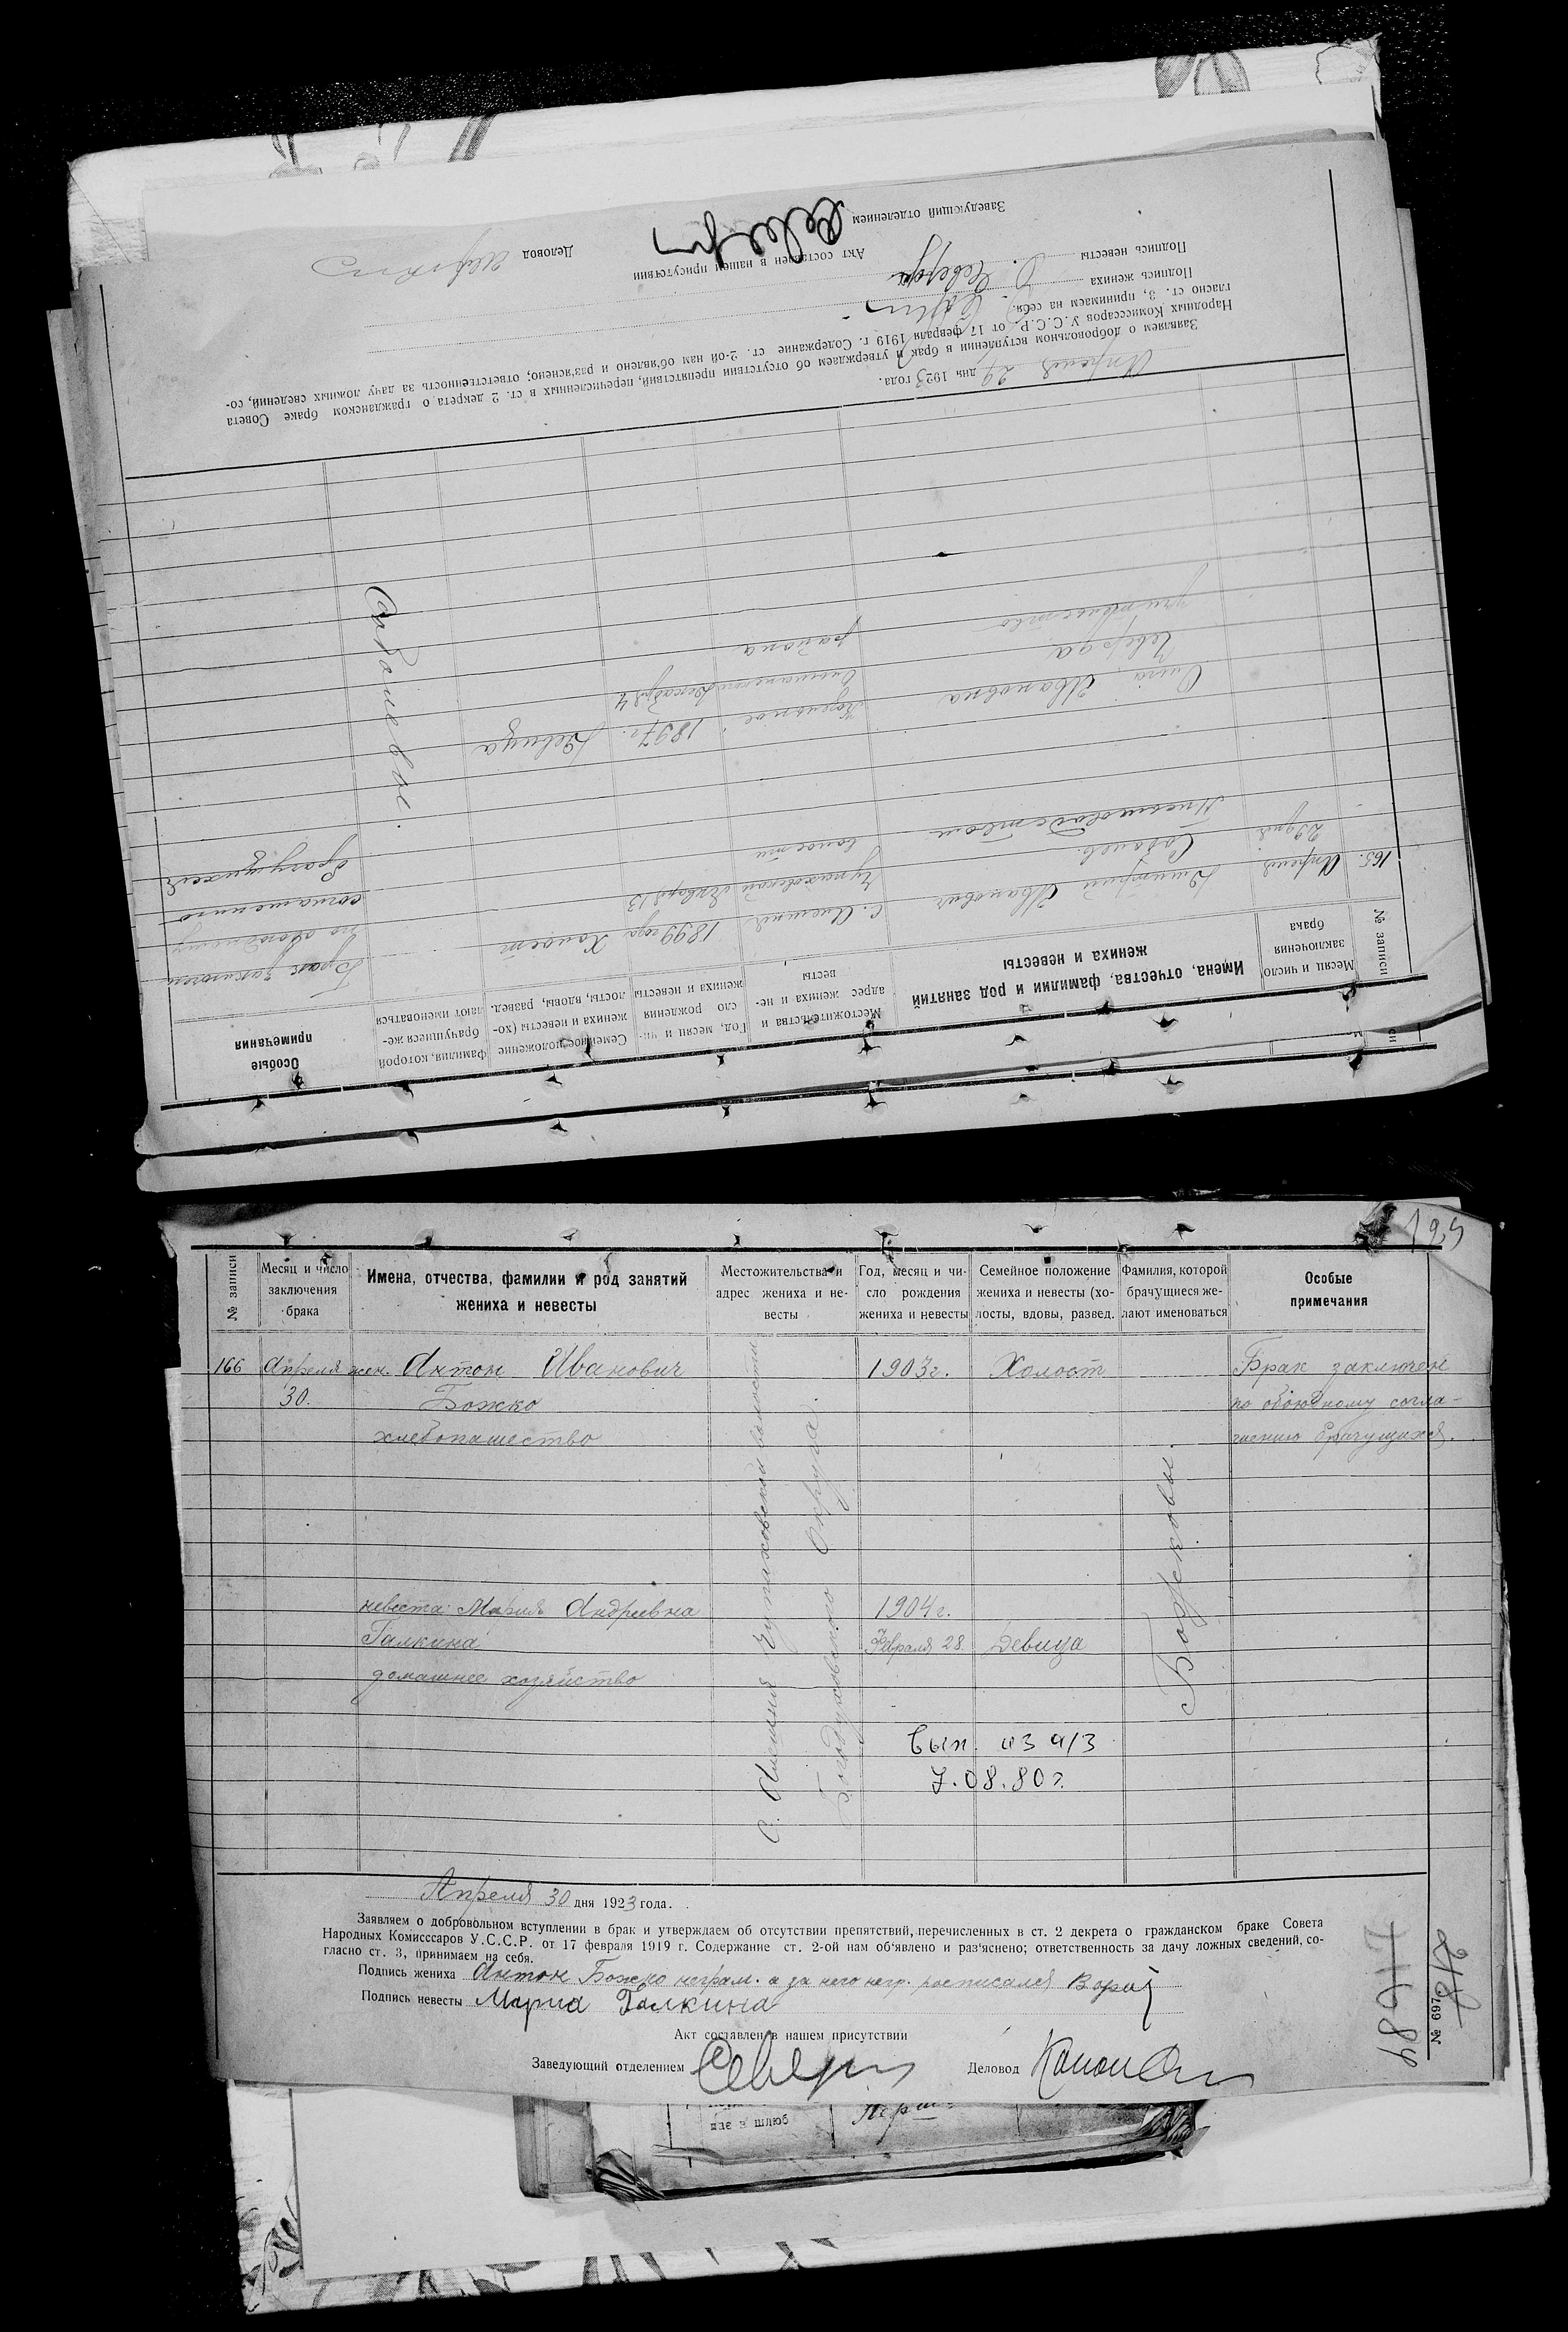 № записи
Месяц и число заключения брака
Имена, отчества, фамилии и род занятий жениха и невесты
Местожительства и адрес жениха и невесты
Год, месяц и число рождения жениха и невесты
Семейное положение жениха и невесты (холосты, вдовы, развед.
Фамилия, которой брачущиеся желают именоваться
Особые примечания
165.
Апреля
29 дня
Дмитрий Иванович
Соболев.
с. Алешня
Чупаховской
волости
1899 года
Января 13
Холост
Соболевы.
Брак заключен
по обоюдному
соглашению
брачущихся
Ольга Ивановна
Чеверда
учительство
района
1897 г.
Девица
Апреля 29 дня 1923 года.
Заявляем о добровольном вступлении в брак и утверждаем об отсутствии препятствий, перечисленных в ст. 2 декрета о гражданском браке Совета
Народных Комиссаров У.С.С.Р. от 17 февраля 1919 г. Содержание ст. 2-ой нам об'явлено и раз'яснено; ответственность за дачу ложных сведений, со-
гласно ст. 3, принимаем на себя.
Подпись жениха
Подпись невесты О. Чеверда
Акт составлен в нашем присутствии
Заведующий отделением
Деловод
195
№ записи
Месяц и число
заключения
брака
Имена, отчества, фамилии и род занятий
жениха и невесты
Местожительства и
адрес жениха и не-
весты
Год, месяц и чи-
сло рождения
жениха и невесты
Семейное положение
жениха и невесты (хо-
лосты, вдовы, развед.
Фамилия, которой
брачущиеся же-
лают именоваться
Особые
примечания
166
Апреля
30.
жен. Антон Иванович
Божко
хлебопашество
1903 г.
Холост
Брак заключен
по обоюдному согла-
шению брачущихся.
с. Алешня Чупаховской волости
Богодуховского Округа.
Божковы.
невеста: Мария Андреевна
Галкина
домашнее хозяйство
1904 г.
Февраля 28
Девица
Вып. из а/з
7.08.80 г.
Апреля 30 дня 1923 года.
Заявляем о добровольном вступлении в брак и утверждаем об отсутствии препятствий, перечисленных в ст. 2 декрета о гражданском браке Совета
Народных Комисссаров У.С.С.Р. от 17 февраля 1919 г. Содержание ст. 2-ой нам об'явлено и раз'яснено; ответственность за дачу ложных сведений, со-
гласно ст. 3, принимаем на себя.
Подпись жениха Антон Божко неграм. а за него негр. росписался
Подпись невесты Мариа Галкина
Акт составлен в нашем присутствии
Заведующий отделением
Деловод
№ 697
218